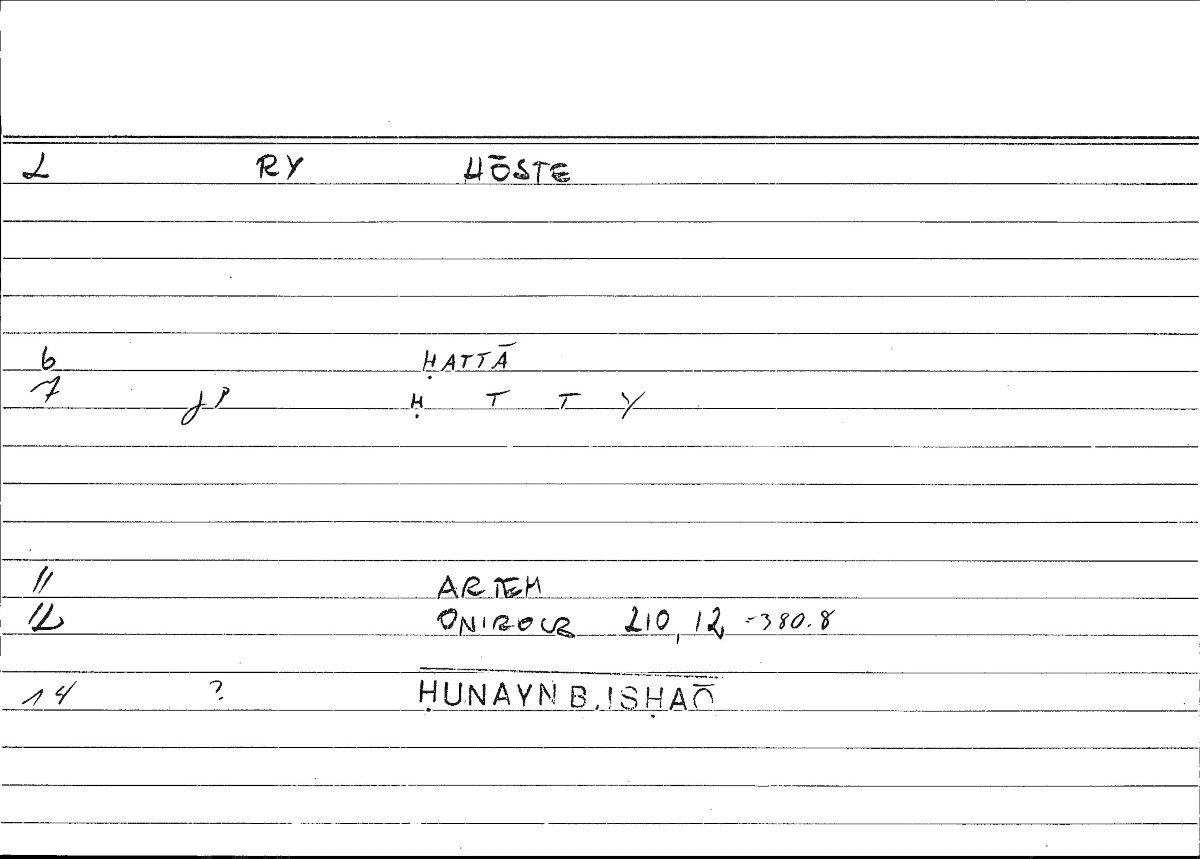 2 RY HŌSTE
6 ḤATTĀ
7 jp Ḥ T T Y
11 ARTEM
12 ONIROCR 210,12 -380.8
14 ? ḤUNAYN B. ISḤAQ